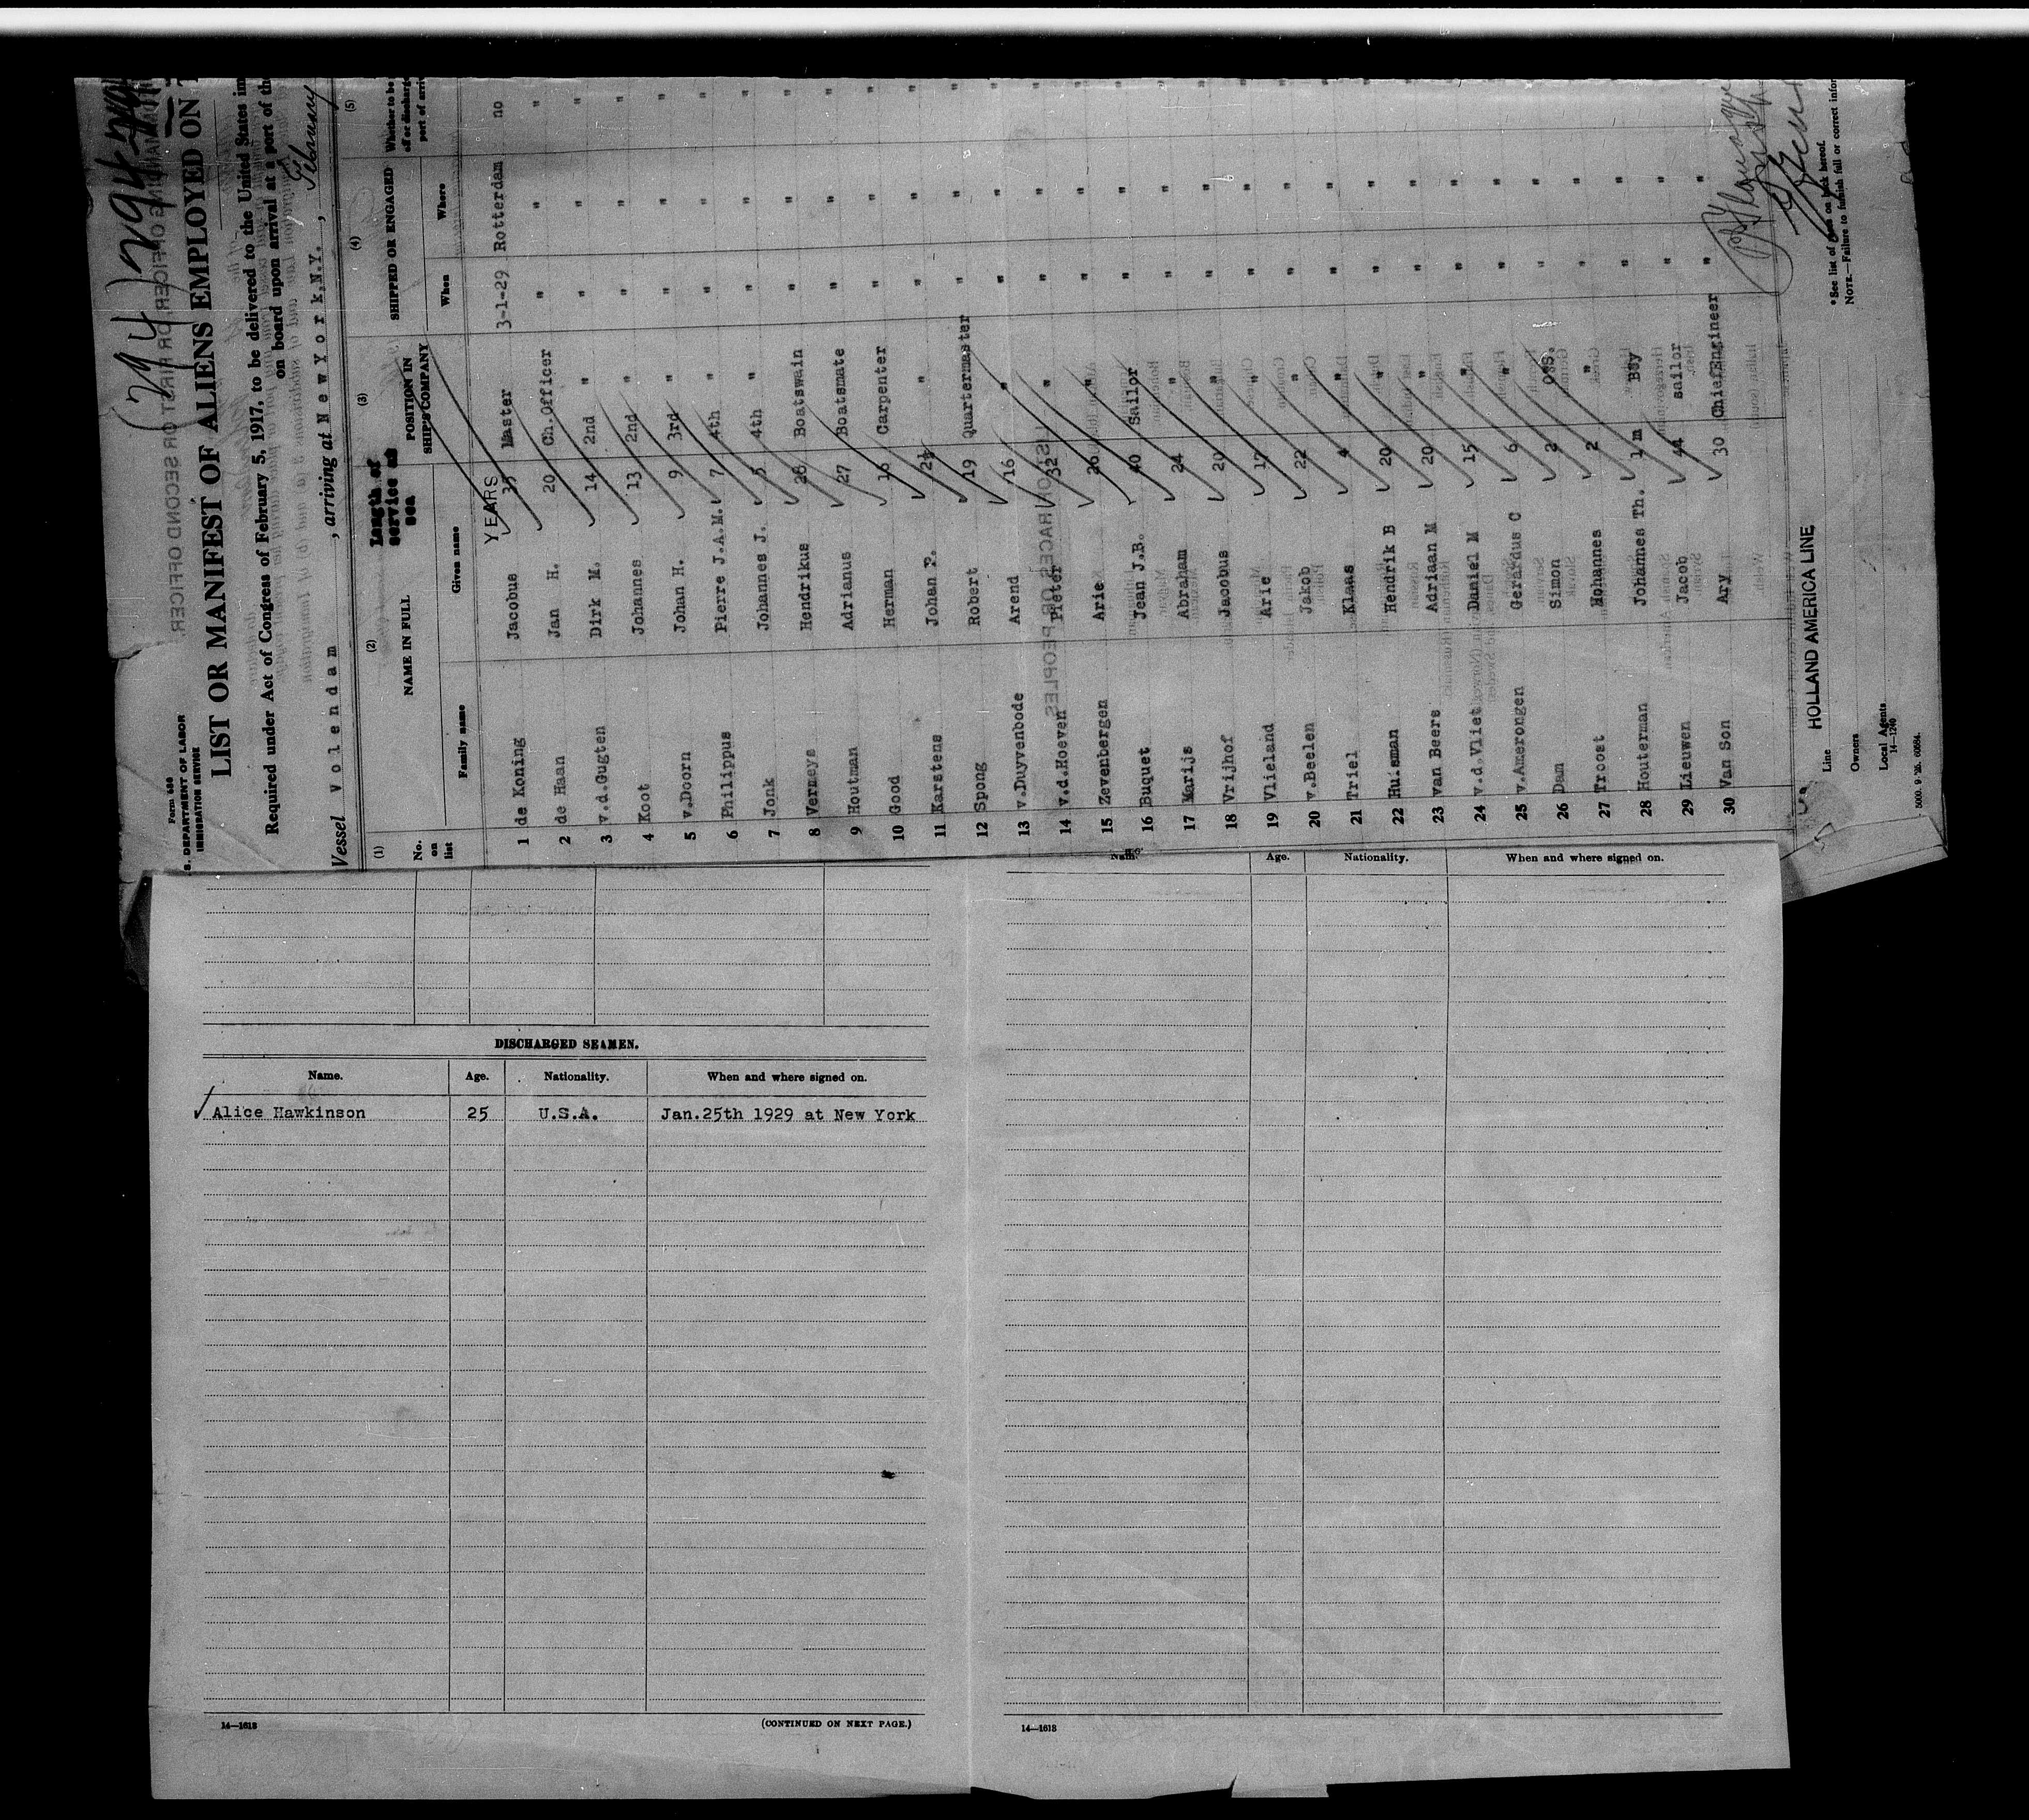 (294)
Form 680
S. DEPARTMENT OF LABOR
IMMIGRATION SERVICE
LIST OR MANIFEST OF ALIENS EMPLOYED ON
Required under Act of Congress of February 5, 1917, to be delivered to the United States
on board upon arrival at a port of the
Vessel Volendam, arriving at New York, N.Y., February
(1) (2) (3) (4) (5)
No. on list
NAME IN FULL
Family name Given name
Length of service at sea
POSITION IN SHIP'S COMPANY
SHIPPED OR ENGAGED
When Where
Whether to be
YEARS
1 de Koning Jacobus 35 Master 3-1-29 Rotterdam no
2 de Haan Jan H. 20 Ch.Officer " " "
3 v.d.Gugten Dirk M. 14 2nd " " " "
4 Koot Johannes 13 2nd " " " "
5 v.Doorn Johan H. 9 3rd " " " "
6 Philippus Pierre J.A.M. 7 4th " " " "
7 Jonk Johannes J. 5 4th " " " "
8 Vermeys Hendrikus 28 Boatswain " " "
9 Houtman Adrianus 27 Boatsmate " " "
10 Good Herman 16 Carpenter " " "
11 Karstens Johan P. " " " "
12 Spong Robert 19 Quartermaster " " "
13 v.Duyvenbode Arend 16 " " " "
14 v.d.Hoeven Pieter 32 " " " "
15 Zevenbergen Arie 26 " " " "
16 Buquet Jean J.B. 40 Sailor " " "
17 Marijs Abraham 24 " " " "
18 Vrijhof Jacobus 20 " " " "
19 Vlieland Arie 17 " " " "
20 v.Beelen Jakob 22 " " " "
21 Triel Klaas 4 " " " "
22 Huisman Hendrik B 20 " " " "
23 van Beers Adriaan M 20 " " " "
24 v.d.Vliet Daniel M 15 " " " "
25 v.Amerongen Gerardus C 6 " " " "
26 Dam Simon 2 OSS. " " "
27 Troost Hohannes 2 " " " "
28 Houterman Johannes Th. 1 m Boy " " "
29 Lieuwen Jacob 44 sailor " " "
30 Van Son Ary 30 ChiefEngineer " " "
Line HOLLAND AMERICA LINE
Owners
Local Agents
14—1240
* See list of races on back hereof.
NOTE.—Failure to furnish full or correct
DISCHARGED SEAMEN.
Name. Age. Nationality. When and where signed on.
Alice Hawkinson 25 U.S.A. Jan.25th 1929 at New York
14—1618 (CONTINUED ON NEXT PAGE.)
Name. Age. Nationality. When and where signed on.
14—1618